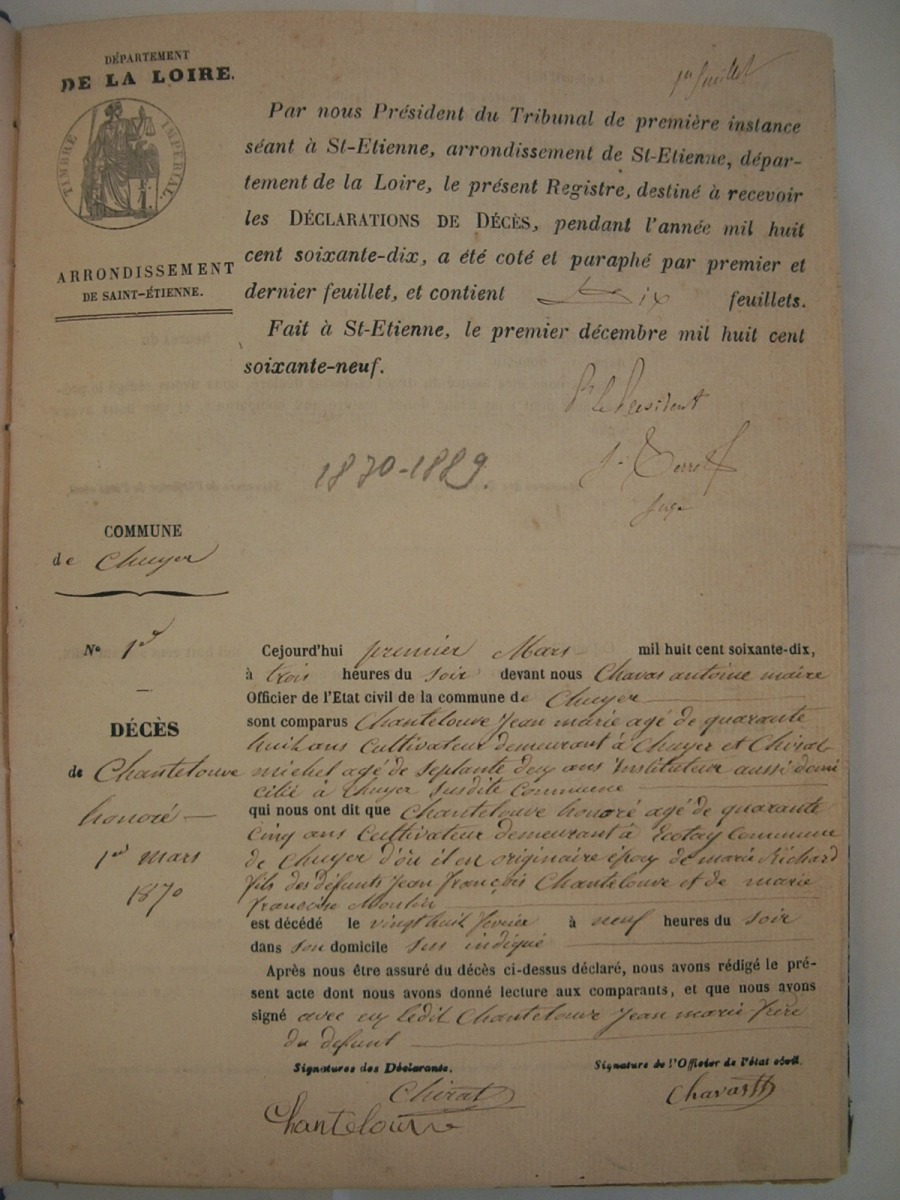 DÉPARTEMENT
DE LA LOIRE.
TIMBRE IMPÉRIAL.
ARRONDISSEMENT
DE SAINT-ÉTIENNE.
1er feuillet
Par nous Président du Tribunal de première instance
séant à St-Etienne, arrondissement de St-Etienne, dépar-
tement de la Loire, le présent Registre, destiné à recevoir
les DÉCLARATIONS DE DÉCÈS, pendant l'année mil huit
cent soixante-dix, a été coté et paraphé par premier et
dernier feuillet, et contient Dix feuillets.
Fait à St-Etienne, le premier décembre mil huit cent
soixante-neuf.
Pr le Président
Juge
1870-1889.
COMMUNE
de Chuyer
N° 1er
DÉCÈS
de Chantelouve
honoré
1er mars
1870
Cejourd'hui premier Mars mil huit cent soixante-dix,
à trois heures du soir devant nous Chavas antoine maire
Officier de l'Etat civil de la commune de Chuyer
sont comparus Chantelouve Jean marie agé de quarante
huit ans Cultivateur demeurant à Chuyer et Chirat
michel agé de septante deux ans instituteur aussi domi
cilié à Chuyer susdite Commune
qui nous ont dit que Chantelouve honoré agé de quarante
cinq ans Cultivateur demeurant à Ecotay Commune
de Chuyer d'où il en originaire époux de marie Richard
fils des défunts Jean françois Chantelouve et de marie
francoise Moulin
est décédé le vingt huit février à neuf heures du soir
dans son domicile sus indiqué
Après nous être assuré du décès ci-dessus déclaré, nous avons rédigé le pré-
sent acte dont nous avons donné lecture aux comparants, et que nous avons
signé avec eux ledit Chantelouve Jean marie frère
du defunt
Signatures des Déclarants.
Signature de l'Officier de l'état civil.
Chirat
Chavas
Chantelouve